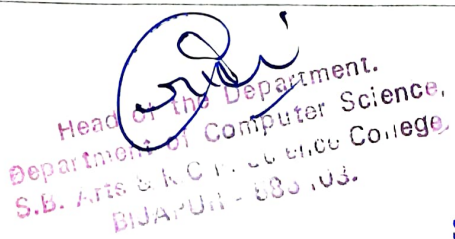 Head of the Department.
Department of Computer Science,
S.B. Arts & K C P. Science College,
BIJAPUR - 03.
S